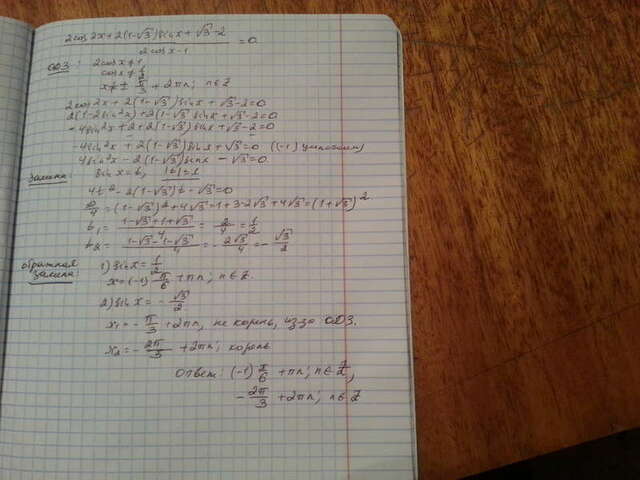 2cos2x+2(1-√3)sinx+√3-2 / 2cosx-1 = 0
ОДЗ: 2cosx≠1
cosx≠1/2
x≠±π/3+2πn; n∈Z
2cos2x+2(1-√3)sinx+√3-2=0
2(1-2sin²x)+2(1-√3)sinx+√3-2=0
-4sin²x+2+2(1-√3)sinx+√3-2=0
-4sin²x+2(1-√3)sinx+√3=0 |(-1)
4sin²x-2(1-√3)sinx-√3=0.
Замена: sinx=t, |t|≤1
4t²-2(1-√3)t-√3=0
D/4=(1-√3)²+4√3=1+3-2√3+4√3=(1+√3)²
t₁=(1-√3+1+√3)/4=2/4=1/2
t₂=(1-√3-1-√3)/4=-2√3/4=-√3/2
обратная замена: 1) sinx=1/2
x=(-1)π/6+πn; n∈Z.
2) sinx=-√3/2
x₁=-π/3+2πn, не корень, из за ОДЗ.
x₂=-2π/3+2πn; корень
Ответ: (-1)π/6+πn; n∈Z,
-2π/3+2πn; n∈Z